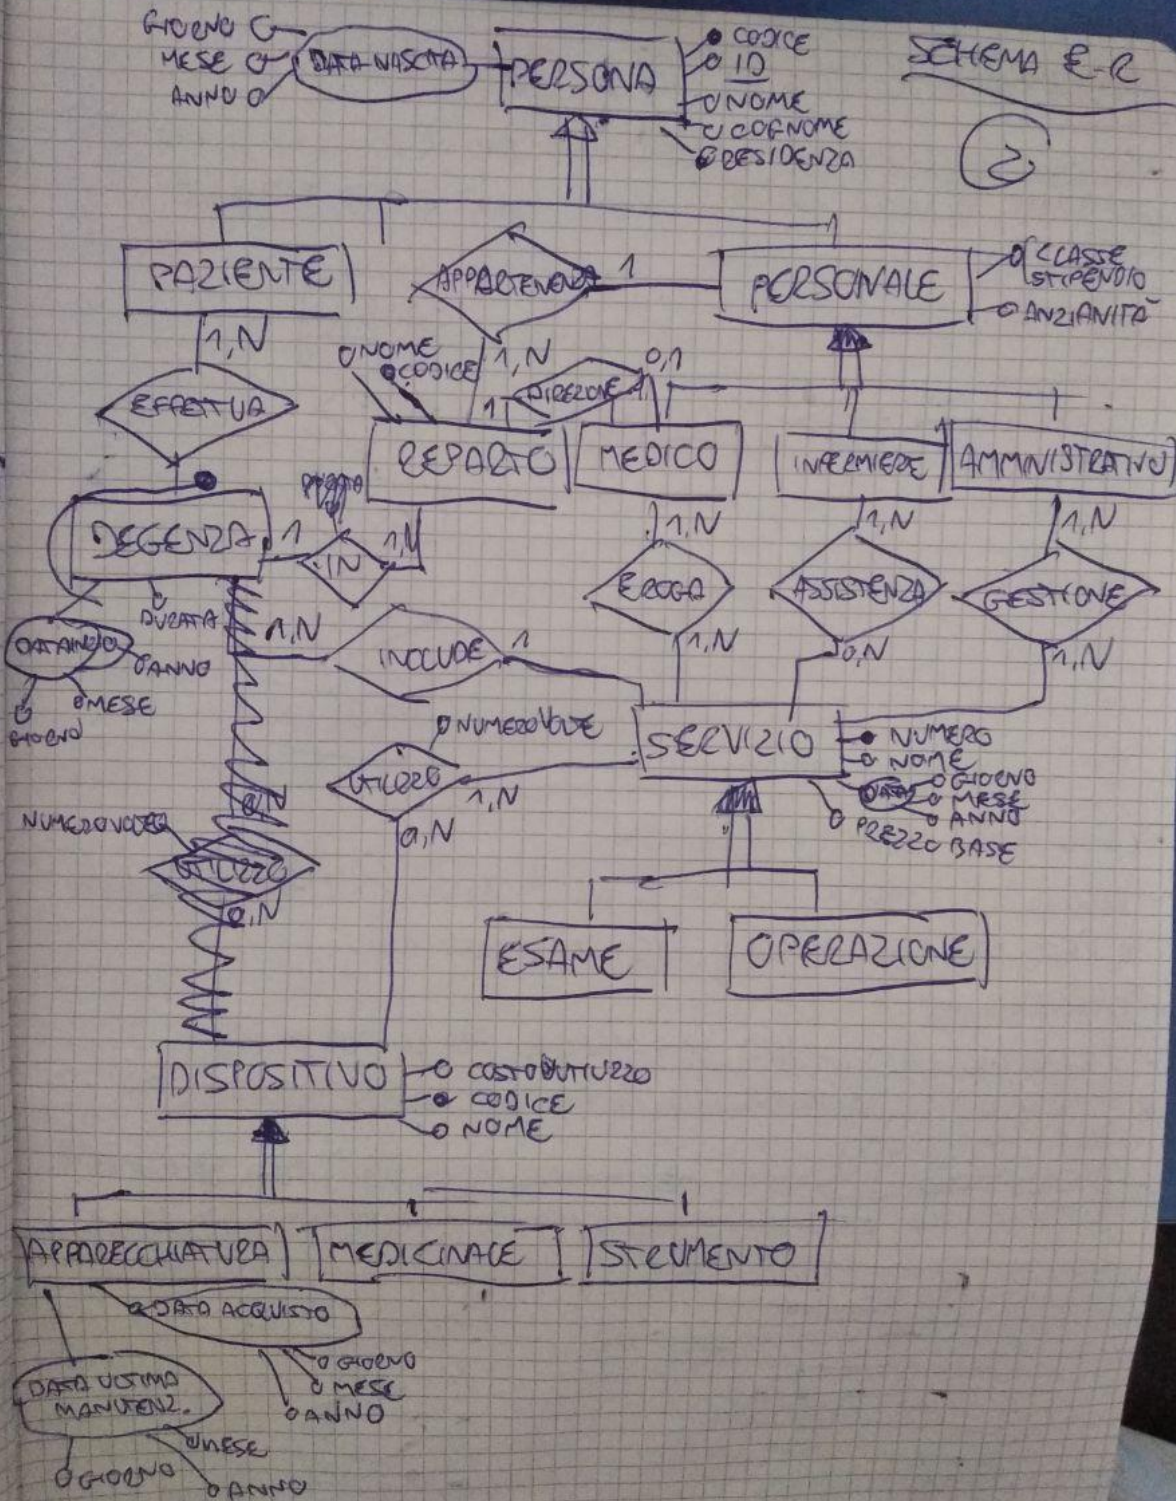 SCHEMA E-R
2
GIORNO
MESE
ANNO
DATA NASCITA
PERSONA
CODICE
ID
NOME
COGNOME
RESIDENZA
PAZIENTE
APPARTENENZA
1
PERSONALE
CLASSE
STIPENDIO
ANZIANITÀ
1,N
NOME
CODICE
1,N
1
DIREZIONE
0,1
EFFETTUA
REPARTO
MEDICO
INFERMIERE
AMMINISTRATIVO
DEGENZA
1
IN
1,N
1,N
1,N
1,N
EROGA
ASSISTENZA
GESTIONE
DURATA
DATA INIZIO
ANNO
MESE
GIORNO
1,N
INCLUDE
1
1,N
0,N
1,N
NUMERO VOLTE
SERVIZIO
NUMERO
NOME
DATA
GIORNO
MESE
ANNO
PREZZO BASE
UTILIZZO
1,N
0,N
NUMERO VOLTE
UTILIZZO
0,N
ESAME
OPERAZIONE
DISPOSITIVO
COSTO UTILIZZO
CODICE
NOME
APPARECCHIATURA
MEDICINALE
STRUMENTO
DATA ACQUISTO
GIORNO
MESE
ANNO
DATA ULTIMA
MANUTENZ.
MESE
GIORNO
ANNO